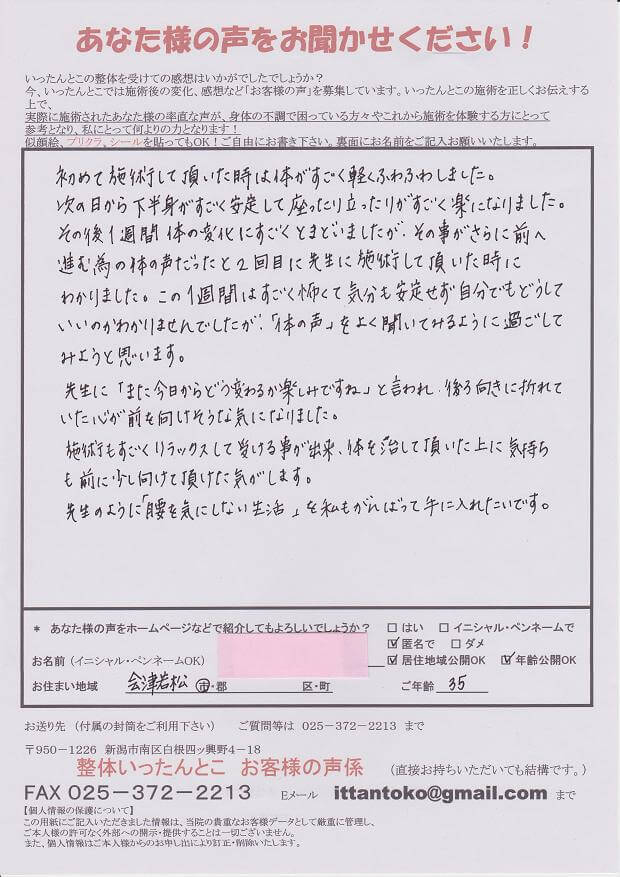 あなた様の声をお聞かせください！
いったんとこの整体を受けての感想はいかがでしたでしょうか？
今、いったんとこでは施術後の変化、感想など「お客様の声」を募集しています。いったんとこの施術を正しくお伝えする
上で、
実際に施術されたあなた様の率直な声が、身体の不調で困っている方々やこれから施術を体験する方にとって
参考となり、私にとって何よりの力となります！
似顔絵、プリクラ、シールを貼ってもOK！ご自由にお書き下さい。裏面にお名前をご記入お願いいたします。
初めて施術して頂いた時は体がすごく軽くふわふわしました。
次の日から下半身がすごく安定して座ったり立ったりがすごく楽になりました。
その後1週間体の変化にすごくとまどいましたが、その事がさらに前へ
進む為の体の声だったと2回目に先生に施術して頂いた時に
わかりました。この1週間はすごく怖くて気分も安定せず自分でもどうして
いいのかわかりませんでしたが、「体の声」をよく聞いてみるように過ごして
みようと思います。
先生に「また今日からどう変わるか楽しみですね」と言われ、後ろ向きに折れて
いた心が前を向けそうな気になりました。
施術もすごくリラックスして受ける事が出来、体を治して頂いた上に気持ち
も前に少し向けて頂けた気がします。
先生のように「腰を気にしない生活」を私もがんばって手に入れたいです。
* あなた様の声をホームページなどで紹介してもよろしいでしょうか？ □はい □イニシャル・ペンネームで
☑匿名で □ダメ
お名前（イニシャル・ペンネームOK） ☑居住地域公開OK ☑年齢公開OK
お住まい地域 会津若松 市・郡 区・町 ご年齢 35
お送り先 （付属の封筒をご利用下さい） ご質問等は 025-372-2213 まで
〒950-1226 新潟市南区白根四ッ興野4-18
整体いったんとこ お客様の声係 （直接お持ちいただいても結構です。）
FAX 025-372-2213 Eメール ittantoko@gmail.com まで
【個人情報の保護について】
この用紙にご記入いただきました情報は、当院の貴重なお客様データとして厳重に管理し、
ご本人様の許可なく外部への開示・提供することは一切ございません。
また、個人情報はご本人様からのお申し出により訂正・削除いたします。